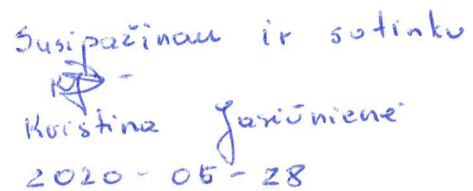 Susipažinau ir sutinku
Kristina Jasiūnienė
2020-05-28